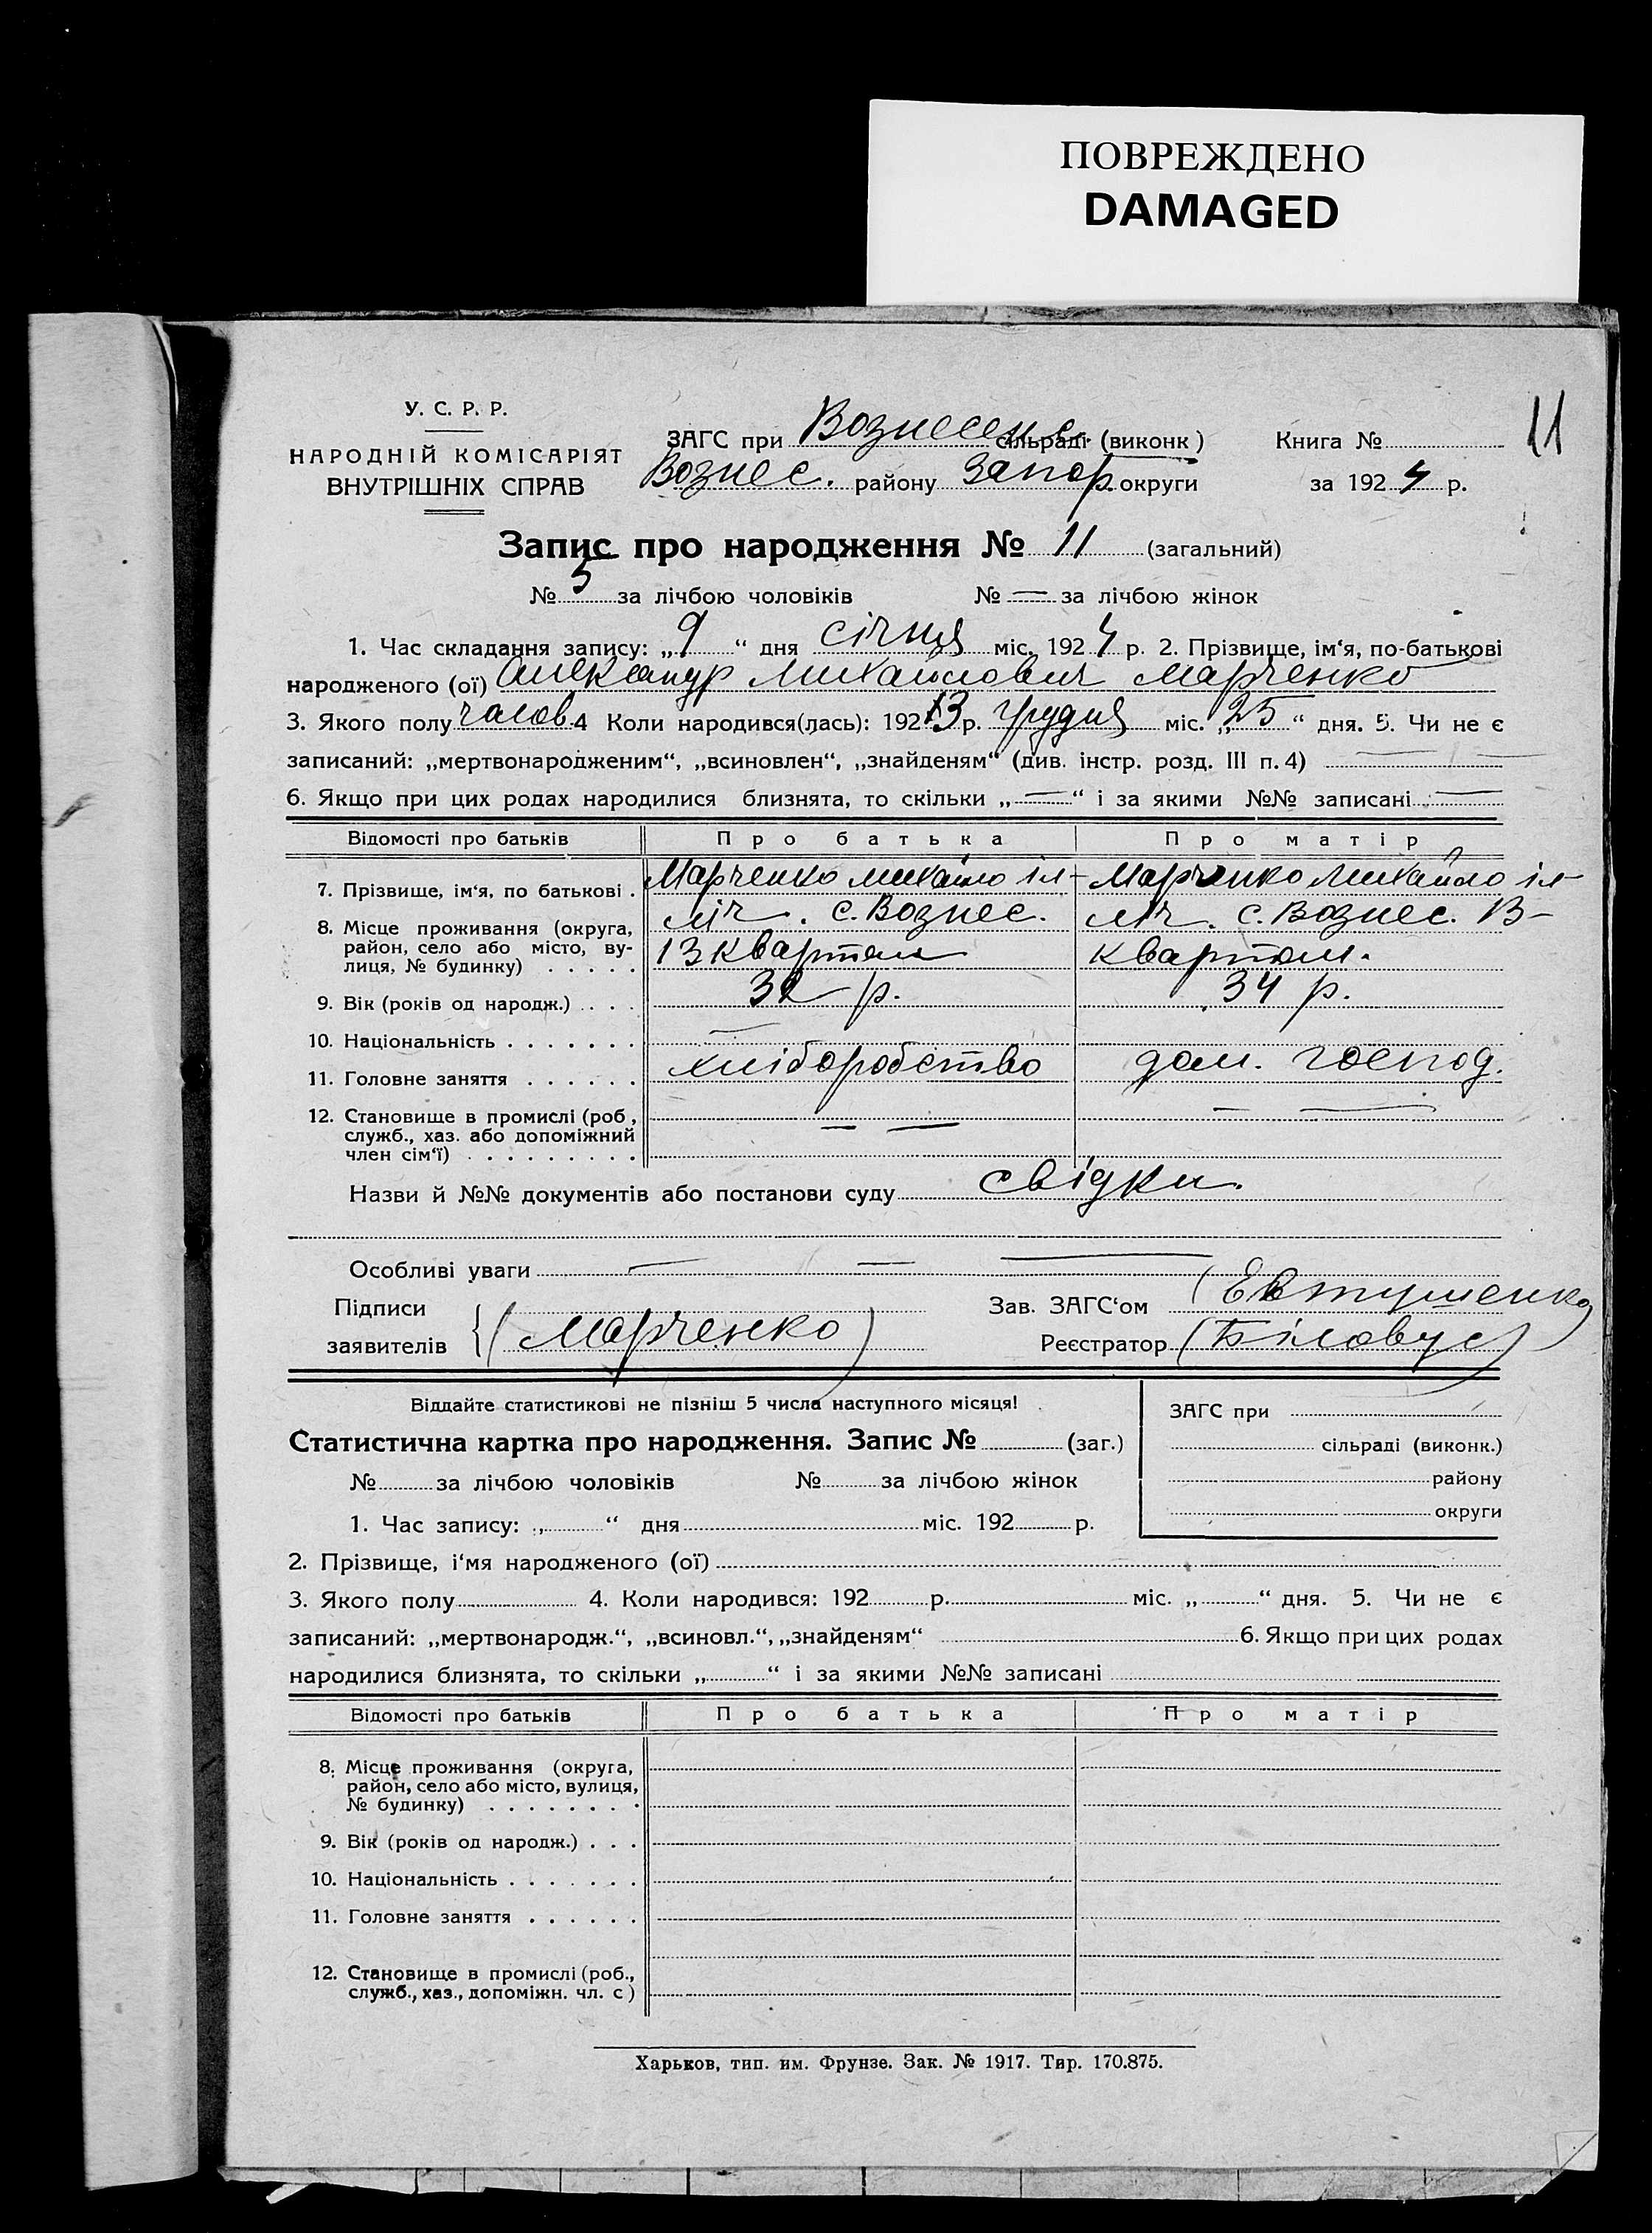 ПОВРЕЖДЕНО
DAMAGED
11
У. С. Р. Р.
НАРОДНІЙ КОМІСАРІЯТ
ВНУТРІШНІХ СПРАВ
ЗАГС при Вознесенс. сільраді (виконк) Книга №
Вознес. району Запор. округи за 1924 р.
Запис про народження № 11 (загальний)
№ 5 за лічбою чоловіків № — за лічбою жінок
1. Час складання запису: „9“ дня січня міс. 1924 р. 2. Прізвище, ім‘я, по-батькові
народженого (ої) Александр Михайлович Марченко
3. Якого полу часов. 4 Коли народився(лась): 1923 р. грудня міс. „25“ дня. 5. Чи не є
записаний: „мертвонародженим“, „всиновлен“, „знайденям“ (див. інстр. розд. III п. 4) —
6. Якщо при цих родах народилися близнята, то скільки „—“ і за якими №№ записані —
Відомості про батьків Про батька Про матір
7. Прізвище, ім‘я, по батькові . Марченко Михайло іл- Марченко Михайло іл-
8. Місце проживання (округа, район, село або місто, вулиця, № будинку) . . . . . ліч. с. Вознес. ліч. с. Вознес. 13-
13 квартал квартал.
9. Вік (років од народж.) . . . 32 р. 34 р.
10. Національність . . . . . . . —
11. Головне заняття . . . . . . хліборобство дом. господ.
12. Становище в промислі (роб, служб., хаз. або допоміжний член сім‘ї) . . . . . . . . . — — — —
Назви й №№ документів або постанови суду свідки.
Особливі уваги — — —
Підписи Зав. ЗАГС‘ом (Евтушенко)
заявителів { (Марченко) Реєстратор (Біловус)
Віддайте статистикові не пізніш 5 числа наступного місяця!
ЗАГС при
Статистична картка про народження. Запис № (заг.)
сільраді (виконк.)
№ за лічбою чоловіків № за лічбою жінок
району
округи
1. Час запису: „ “ дня міс. 192 р.
2. Прізвище, і‘мя народженого (ої)
3. Якого полу 4. Коли народився: 192 р. міс. „ “ дня. 5. Чи не є
записаний: „мертвонародж.“, „всиновл.“, „знайденям“ 6. Якщо при цих родах
народилися близнята, то скільки „ “ і за якими №№ записані
Відомості про батьків Про батька Про матір
8. Місце проживання (округа,
район, село або місто, вулиця,
№ будинку) . . . . . . . .
9. Вік (років од народж.) . . .
10. Національність . . . . . . .
11. Головне заняття . . . . . .
12. Становище в промислі (роб.,
служб., хаз., допоміжн. чл. с)
Харьков, тип. им. Фрунзе. Зак. № 1917. Тир. 170.875.